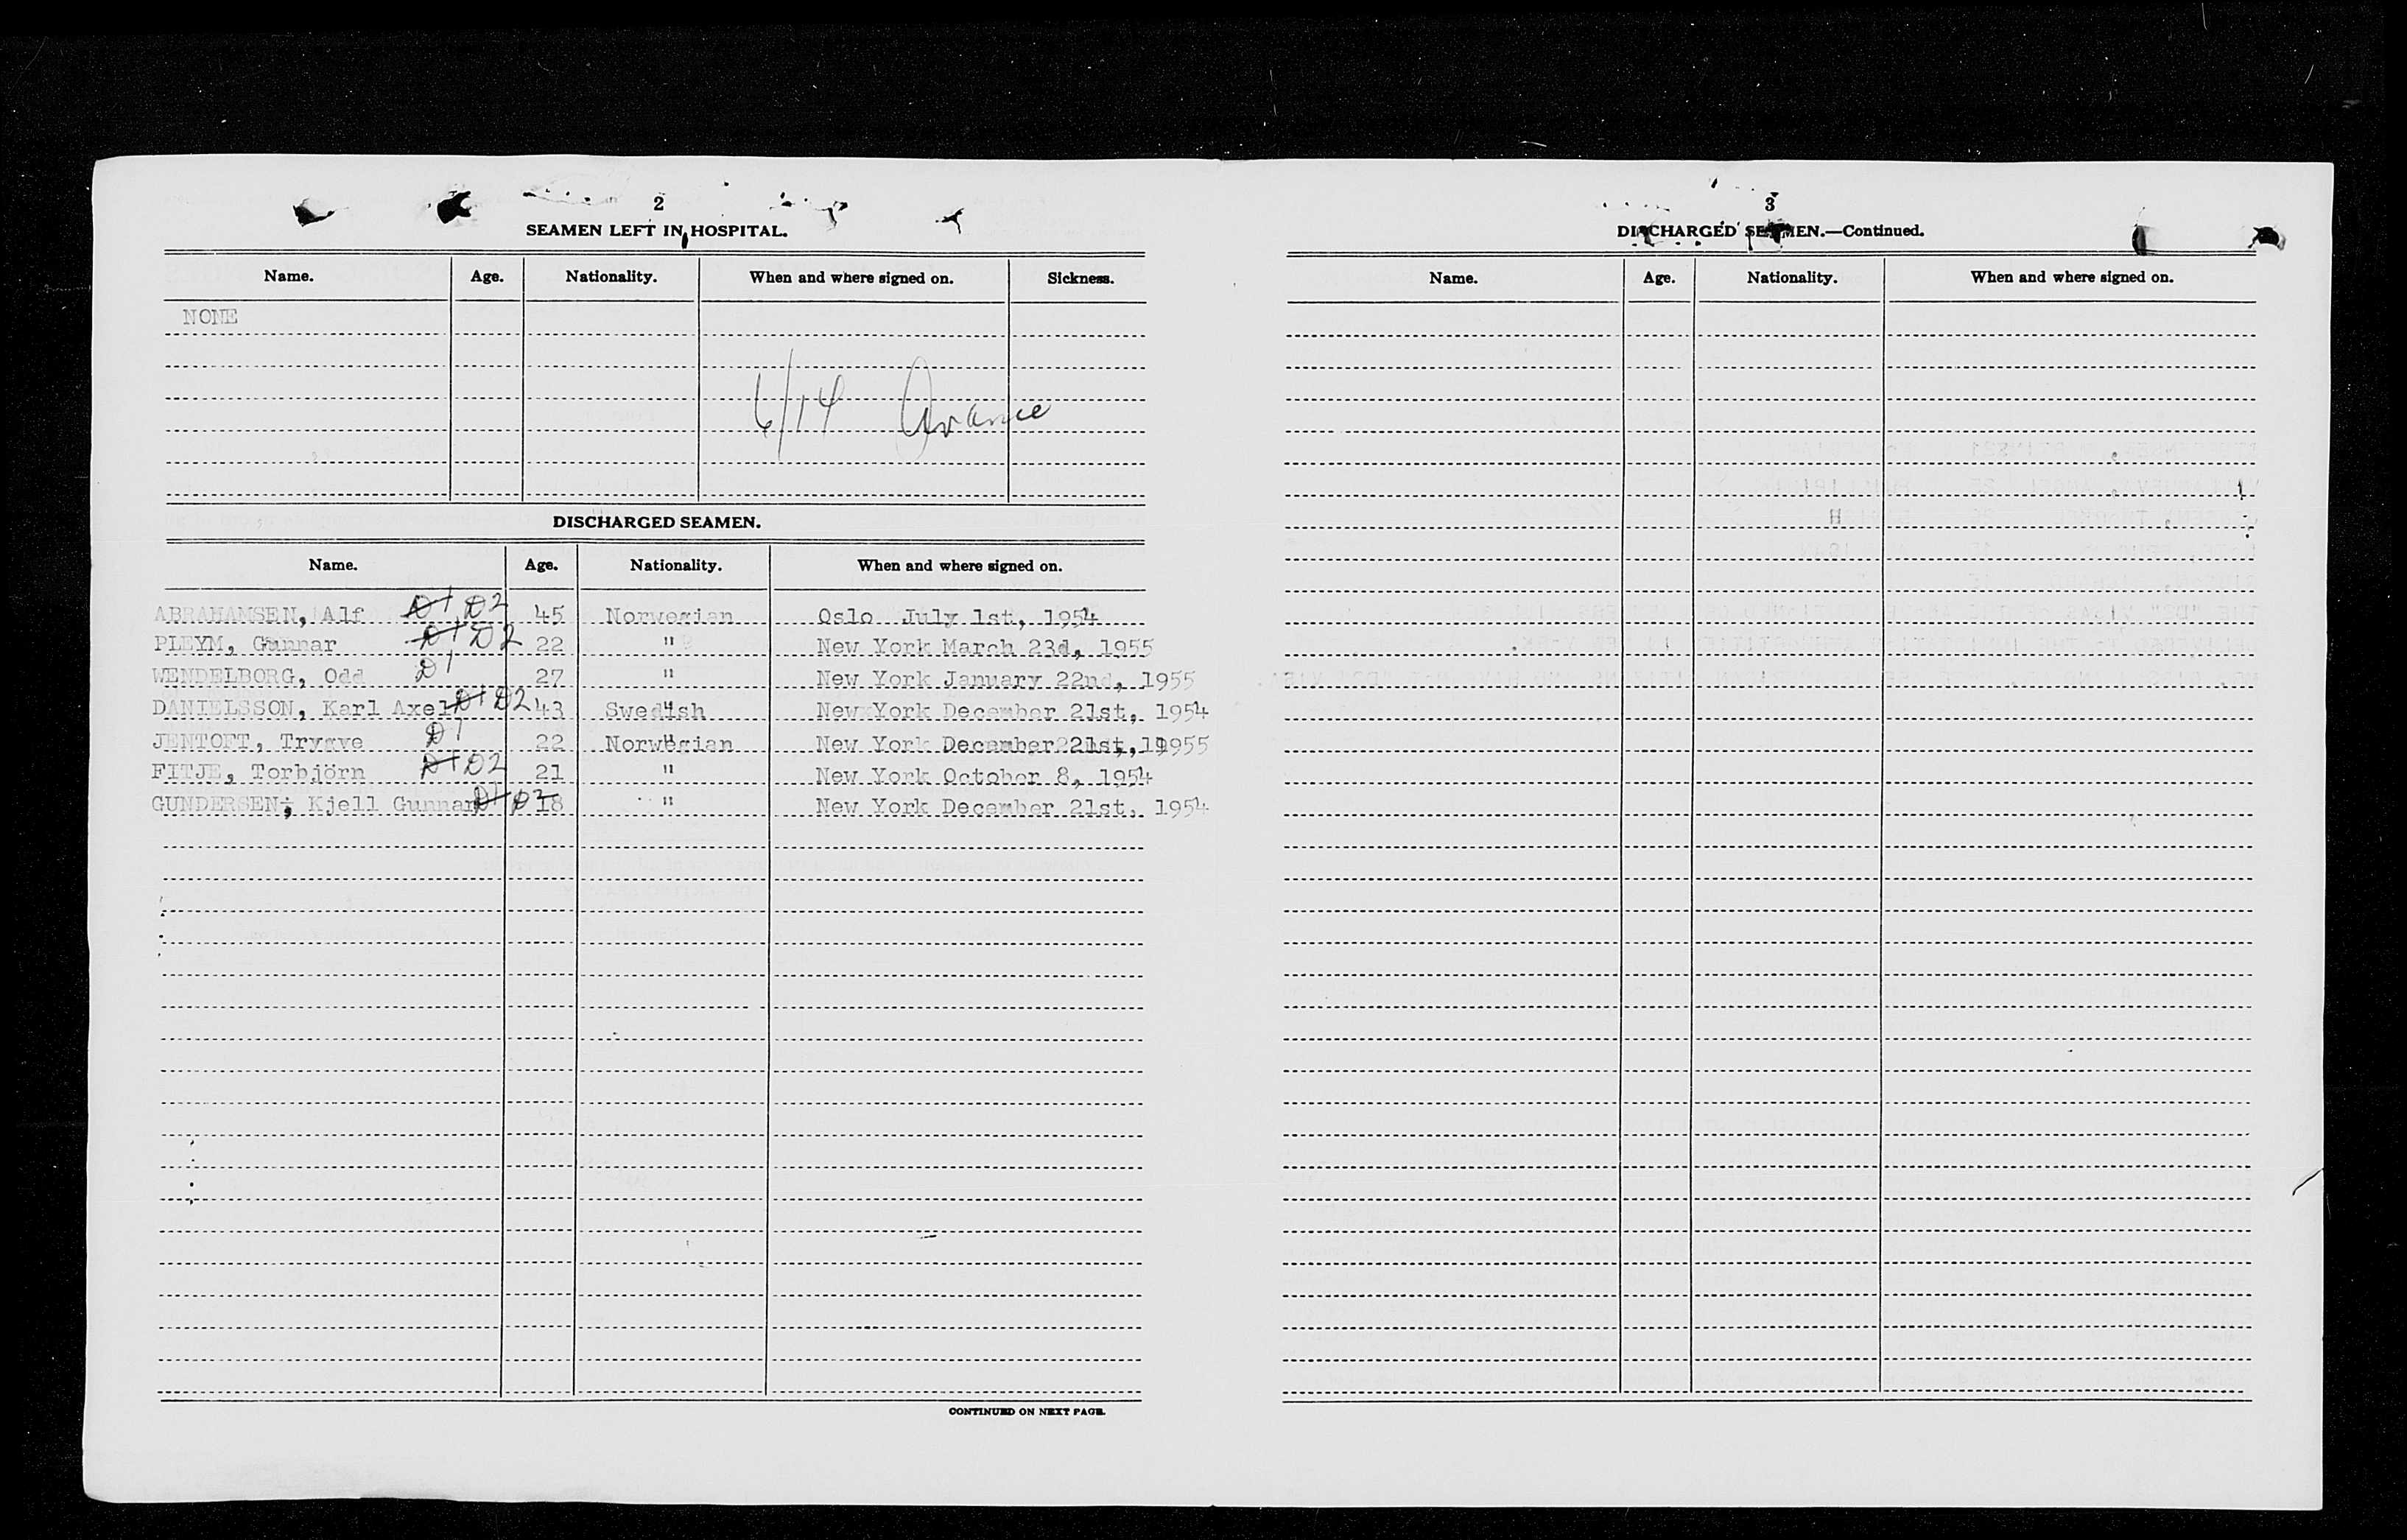 2
SEAMEN LEFT IN HOSPITAL.
Name. Age. Nationality. When and where signed on. Sickness.
NONE
6/14
DISCHARGED SEAMEN.
Name. Age. Nationality. When and where signed on.
ABRAHAMSEN, Alf D1 D2 45 Norwegian Oslo July 1st, 1954
PLEYM, Gunnar D1 D2 22 " New York March 23d, 1955
WENDELBORG, Odd D1 27 " New York January 22nd, 1955
DANIELSSON, Karl Axel D1 D2 43 Swedish New York December 21st, 1954
JENTOFT, Trygve D1 22 Norwegian New York December 21st, 1955
FITJE, Torbjörn D1 D2 21 " New York October 8, 1954
GUNDERSEN, Kjell Gunnar D1 D2 18 " New York December 21st, 1954
CONTINUED ON NEXT PAGE.
3
DISCHARGED SEAMEN.—Continued.
Name. Age. Nationality. When and where signed on.